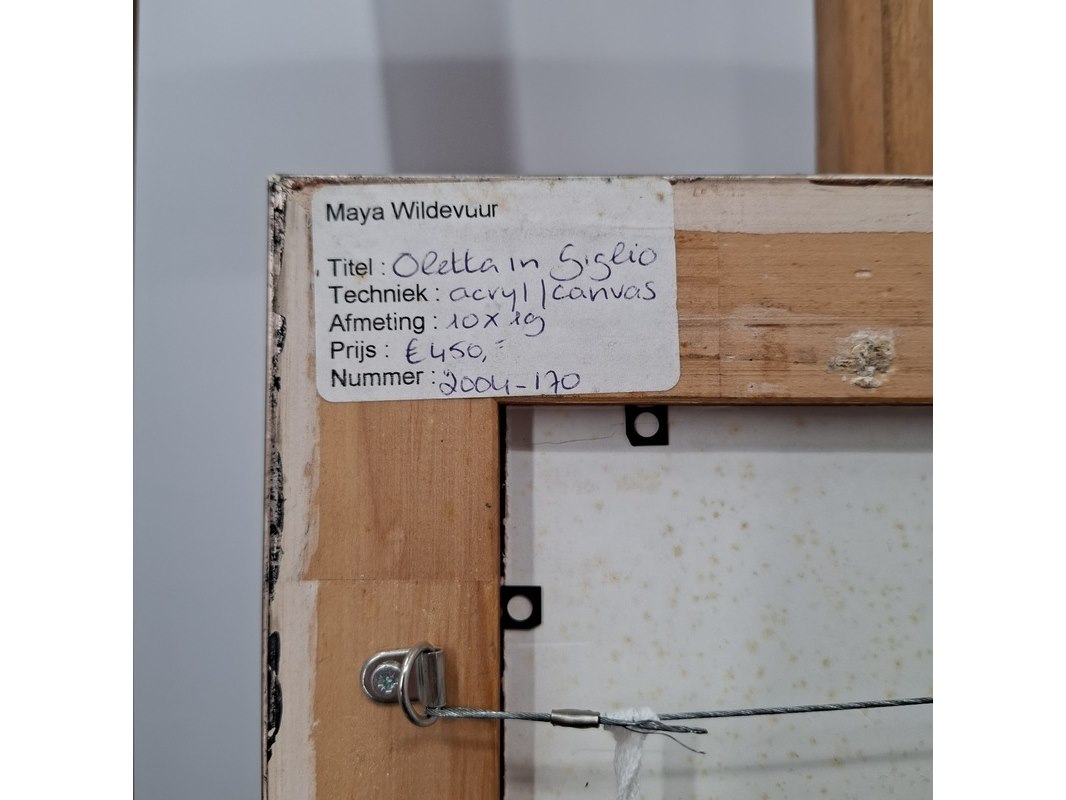 Maya Wildevuur
Titel : Oletta in Giglio
Techniek : acryl / canvas
Afmeting : 10 x 19
Prijs : € 450,=
Nummer : 2004-170